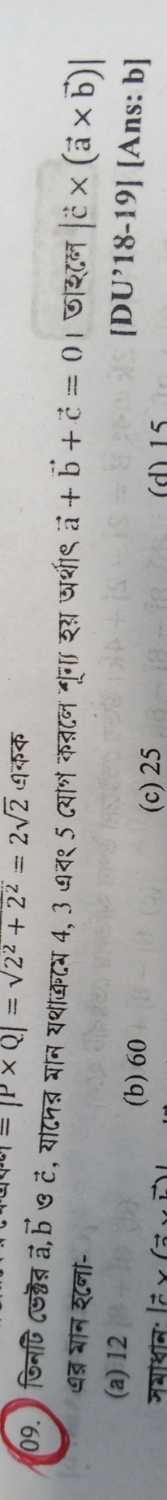 = |P × Q| = √2² + 2² = 2√2 একক
09. তিনটি ভেক্টর a⃗, b⃗ ও c⃗, যাদের মান যথাক্রমে 4, 3 এবং 5 যোগ করলে শূন্য হয় অর্থাৎ a⃗ + b⃗ + c⃗ = 0। তাহলে |c⃗ × (a⃗ × b⃗)|
এর মান হলো- [DU'18-19] [Ans: b]
(a) 12 (b) 60 (c) 25 (d) 15
সমাধান: